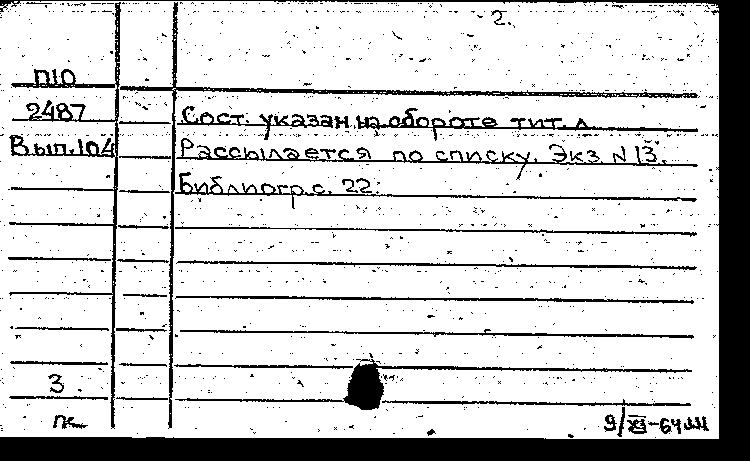 2.
П10
2487 Сост. указан на обороте тит. л.
Вып.104 Рассылается по списку. Экз N 13.
Библиогр.с. 22.
3
9/XI-64